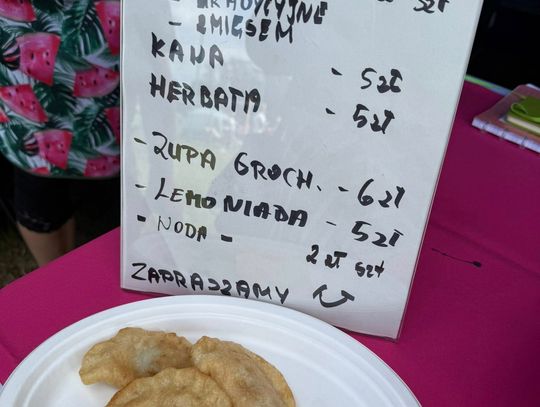 - TRADYCYJNE 5zł
- Z MIĘSEM
KAWA - 5zł
HERBATA - 5zł
- ZUPA GROCH. - 6zł
- LEMONIADA - 5zł
- WODA - 2 zł szt
ZAPRASZAMY